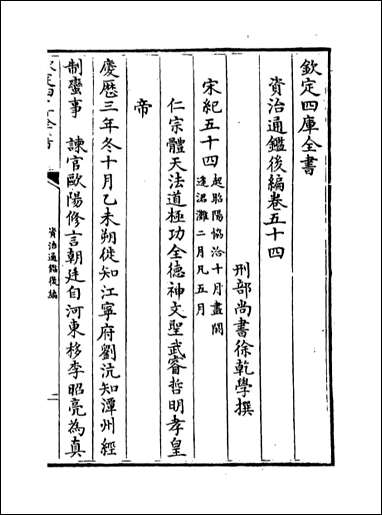 欽定四庫全書
資治通鑑後編卷五十四
刑部尚書徐乾學撰
宋紀五十四
起昭陽協洽十月盡閼
逢涒灘二月凡五月
仁宗體天法道極功全德神文聖武睿哲明孝皇
帝
慶歷三年冬十月乙未朔徙知江寧府劉沆知潭州經
制蠻事 諫官歐陽修言朝廷自河東移李昭亮為真
資治通鑑後編